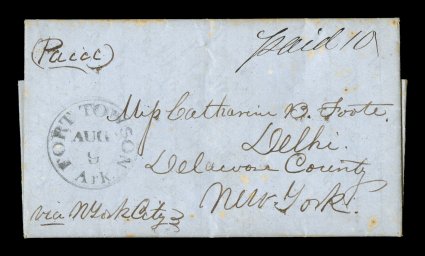 (Paid)
paid 10
FORT TOWSON
AUG
9
Ark.
Miss Catharine B. Foote.
Delhi.
Delaware County
New York.
via N York City